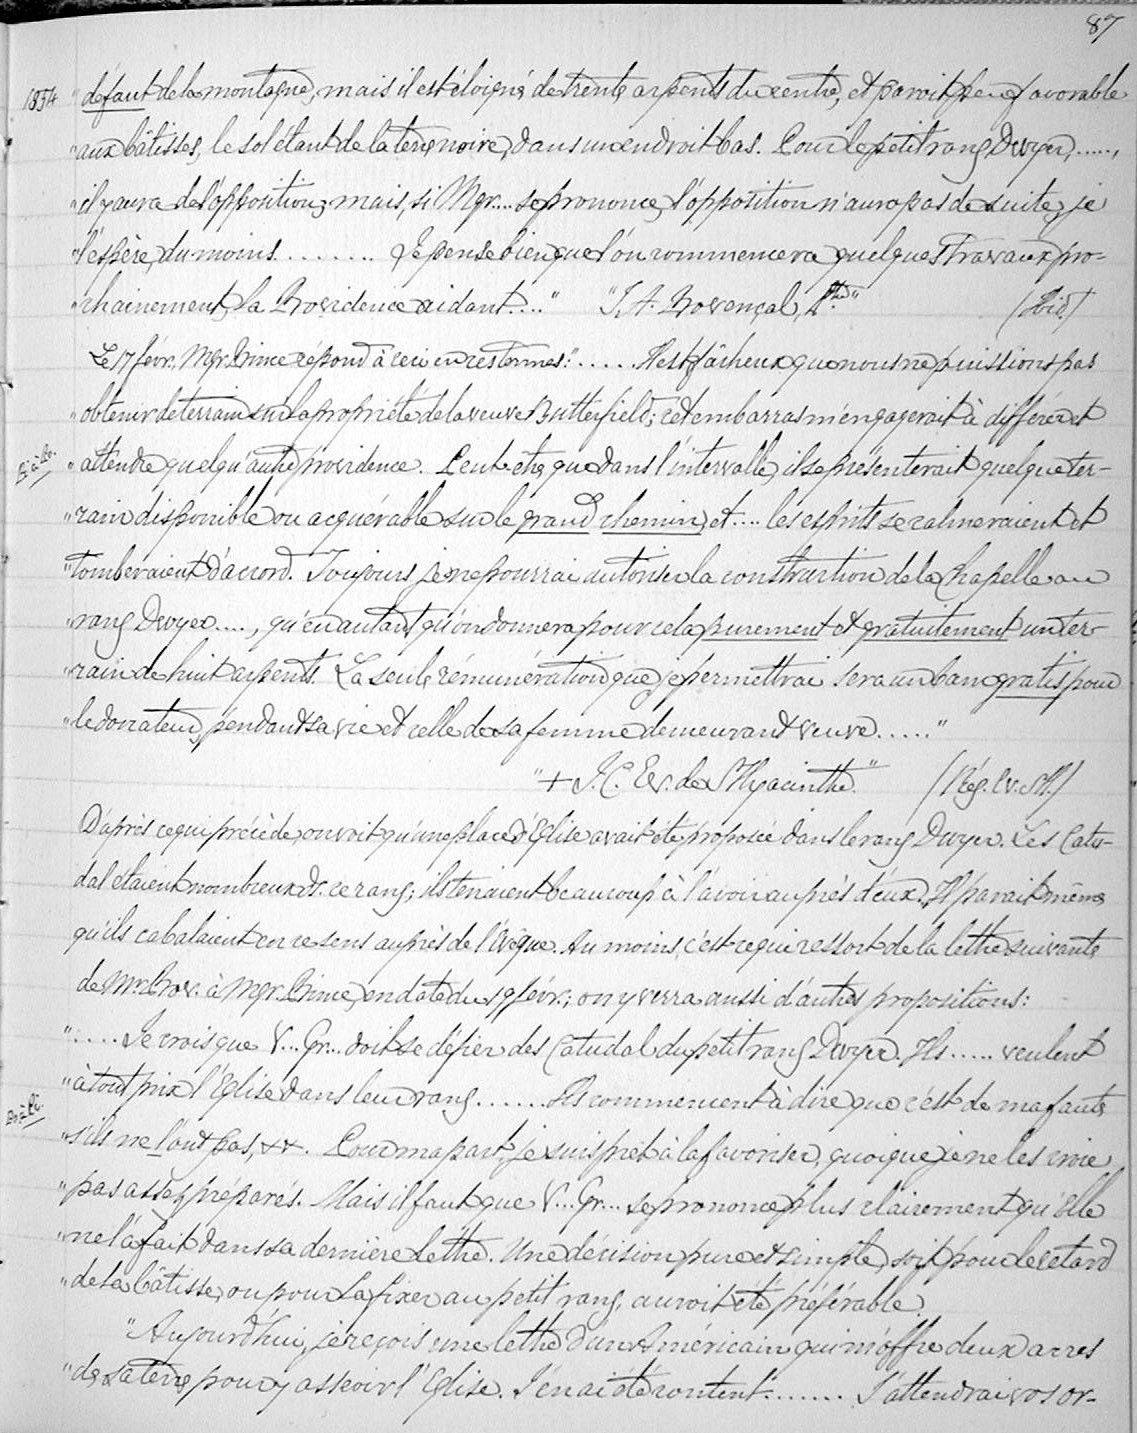 87
1854 "défaut de la montagne, mais il est éloigné de trente arpents du centre, et paroit peu favorable
"aux bâtisses, le sol étant de la terre noire, dans un endroit bas. Pour le petit rang Dwyer, .....,
"il y aura de l'opposition; mais, si Mgr.... se prononce, l'opposition n'aura pas de suite, je
"l'espère, du moins......... Je pense bien que l'on commencera quelques travaux pro-
"chainement, la Providence aidant...." "J. A. Provençal, Ptre" (Ibid)
Le 17 févr., Mgr. Prince répond à ceci en ces termes: "...... Il est fâcheux que nous ne puissions pas
"obtenir de terrain sur la propriété de la veuve Butterfield; cet embarras m'engagerait à différer et
"attendre quelqu'autre providence. Peut-être, que dans l'intervalle, il se présenterait quelque ter-
"rain disponible ou acquérable sur le grand chemin, et.... les esprits se calmeraient et
"tomberaient d'accord. Toujours, je ne pourrai autoriser la construction de la Chapelle au
"rang Dwyer...., qu'en autant qu'on donnera pour cela purement et gratuitement un ter-
"rain de huit arpents. La seule rémunération que je permettrai sera un banc gratis pour
"le donateur, pendant sa vie et celle de sa femme demeurant veuve......"
"+ J. C. Ev. de St Hyacinthe." (Rég. Ev. St H.)
D'après ce qui précède, on voit qu'une place d'Eglise avait été proposée dans le rang Dwyer. Les Catu-
dal étaient nombreux ds. ce rang; ils tenaient beaucoup à l'avoir auprès d'eux. Il parait même
qu'ils cabalaient en ce sens auprès de l'Evêque. Au moins, c'est ce qui ressort de la lettre suivante
de Mr. Prov. à Mgr. Prince, en date du 19 févr.; on y verra aussi d'autres propositions:
"..... Je crois que V... Gr... doit se défier des Catudal du petit rang Dwyer. Ils..... veulent
"à tout prix l'Eglise dans leur rang....... Ils commencent à dire que c'est de ma faute
"s'ils ne l'ont pas, &&. Pour ma part, je suis prêt à la favoriser, quoique je ne les croie
"pas assez préparés. Mais il faut que V... Gr... se prononce plus clairement qu'Elle
"ne l'a fait dans sa dernière Lettre. Une décision pure et simple, soit pour le retard
"de la bâtisse, ou pour la fixer au petit rang, auroit été préférable.
"Aujourd'hui, je reçois une lettre d'un Américain qui m'offre deux acres
"de sa terre pour y asseoir l'Eglise. J'en ai été content....... J'attendrai vos or-